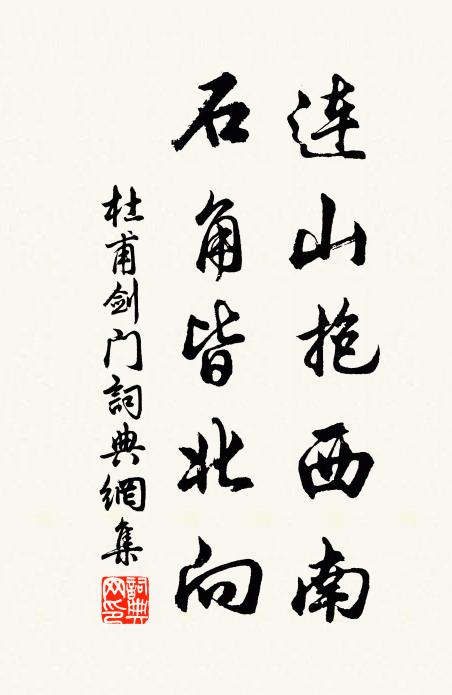 连山抱西南
石角皆北向
杜甫剑门詞典網集
詞典网印